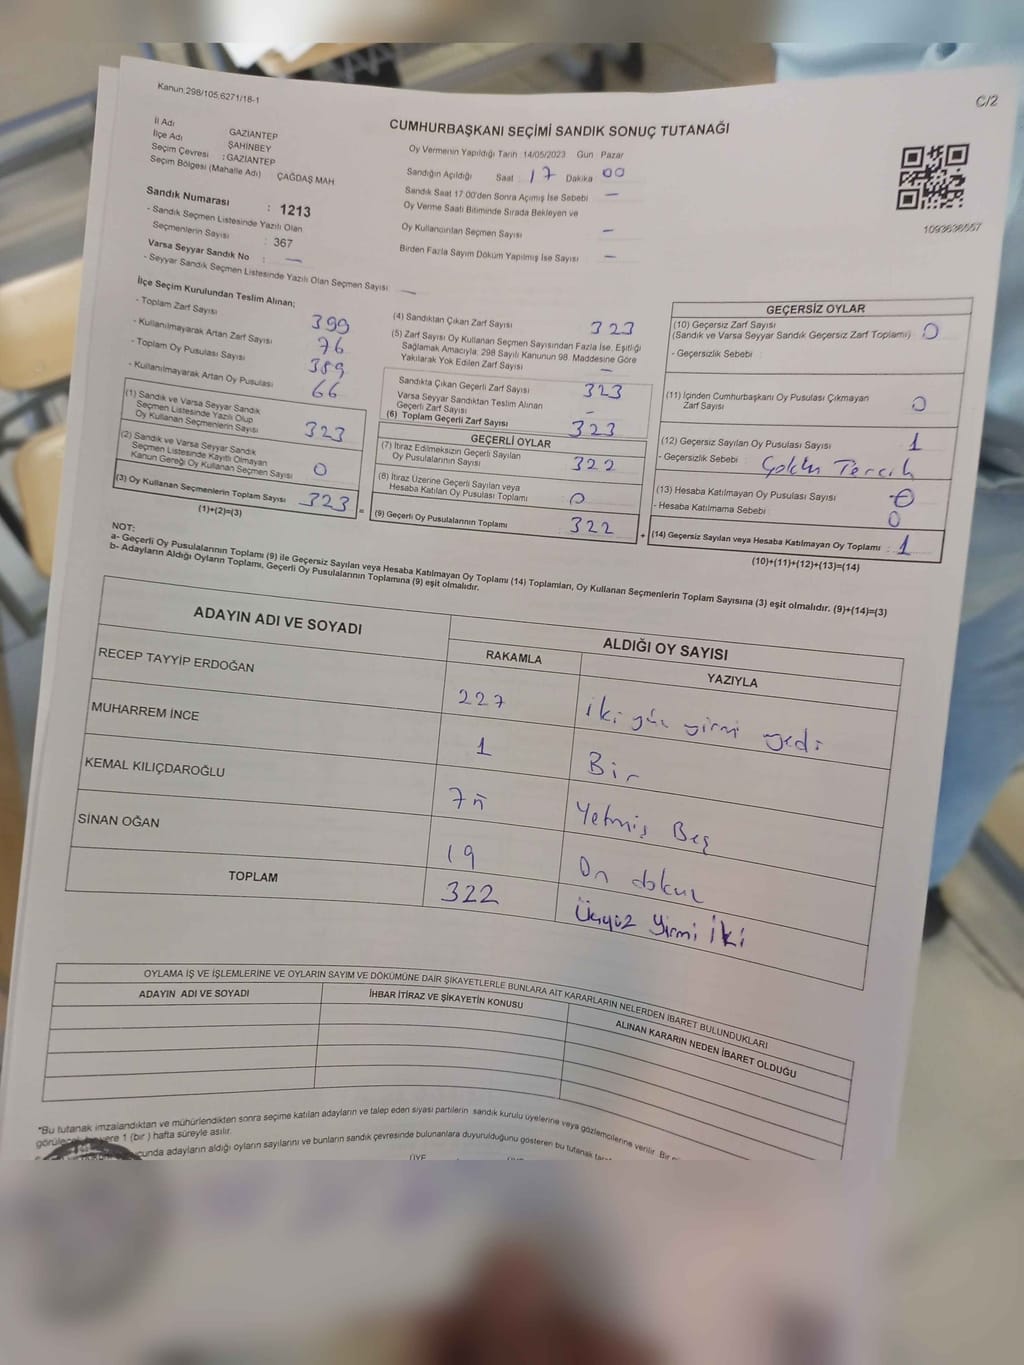 Kanun;298/105,6271/18-1
C/2
CUMHURBAŞKANI SEÇİMİ SANDIK SONUÇ TUTANAĞI
İl Adı GAZİANTEP
İlçe Adı ŞAHİNBEY
Seçim Çevresi : GAZİANTEP
Seçim Bölgesi (Mahalle Adı) : ÇAĞDAŞ MAH
Oy Vermenin Yapıldığı Tarih 14/05/2023 Gün Pazar
Sandığın Açıldığı Saat 17 Dakika 00
Sandık Saat 17:00'den Sonra Açımış İse Sebebi —
Oy Verme Saati Bitiminde Sırada Bekleyen ve
Oy Kullandırılan Seçmen Sayısı —
Birden Fazla Sayım Döküm Yapılmış İse Sayısı —
1093636557
Sandık Numarası : 1213
- Sandık Seçmen Listesinde Yazılı Olan
Seçmenlerin Sayısı : 367
Varsa Seyyar Sandık No : —
- Seyyar Sandık Seçmen Listesinde Yazılı Olan Seçmen Sayısı: —
İlçe Seçim Kurulundan Teslim Alınan;
- Toplam Zarf Sayısı 399
- Kullanılmayarak Artan Zarf Sayısı 76
- Toplam Oy Pusulası Sayısı 389
- Kullanılmayarak Artan Oy Pusulası 66
(1) Sandık ve Varsa Seyyar Sandık
Seçmen Listesinde Yazılı Olup
Oy Kullanan Seçmenlerin Sayısı 323
(2) Sandık ve Varsa Seyyar Sandık
Seçmen Listesinde Kayıtlı Olmayan
Kanun Gereği Oy Kullanan Seçmen Sayısı 0
(3) Oy Kullanan Seçmenlerin Toplam Sayısı 323
(1)+(2)=(3)
(4) Sandıktan Çıkan Zarf Sayısı 323
(5) Zarf Sayısı Oy Kullanan Seçmen Sayısından Fazla İse, Eşitliği
Sağlamak Amacıyla, 298 Sayılı Kanunun 98. Maddesine Göre
Yakılarak Yok Edilen Zarf Sayısı —
Sandıkta Çıkan Geçerli Zarf Sayısı 323
Varsa Seyyar Sandıktan Teslim Alınan
Geçerli Zarf Sayısı -
(6) Toplam Geçerli Zarf Sayısı 323
GEÇERLİ OYLAR
(7) İtiraz Edilmeksizin Geçerli Sayılan
Oy Pusulalarının Sayısı 322
(8) İtiraz Üzerine Geçerli Sayılan veya
Hesaba Katılan Oy Pusulası Toplamı 0
(9) Geçerli Oy Pusulalarının Toplamı 322
GEÇERSİZ OYLAR
(10) Geçersiz Zarf Sayısı
(Sandık ve Varsa Seyyar Sandık Geçersiz Zarf Toplamı) 0
- Geçersizlik Sebebi :
(11) İçinden Cumhurbaşkanı Oy Pusulası Çıkmayan
Zarf Sayısı 0
(12) Geçersiz Sayılan Oy Pusulası Sayısı 1
- Geçersizlik Sebebi :
(13) Hesaba Katılmayan Oy Pusulası Sayısı 0
- Hesaba Katılmama Sebebi 0
(14) Geçersiz Sayılan veya Hesaba Katılmayan Oy Toplamı : 1
(10)+(11)+(12)+(13)=(14)
NOT:
a- Geçerli Oy Pusulalarının Toplamı (9) ile Geçersiz Sayılan veya Hesaba Katılmayan Oy Toplamı (14) Toplamları, Oy Kullanan Seçmenlerin Toplam Sayısına (3) eşit olmalıdır. (9)+(14)=(3)
b- Adayların Aldığı Oyların Toplamı, Geçerli Oy Pusulalarının Toplamına (9) eşit olmalıdır.
ADAYIN ADI VE SOYADI ALDIĞI OY SAYISI
RAKAMLA YAZIYLA
RECEP TAYYİP ERDOĞAN 227 iki yüz yirmi yedi
MUHARREM İNCE 1 Bir
KEMAL KILIÇDAROĞLU 75 Yetmiş Beş
SİNAN OĞAN 19 On dokuz
TOPLAM 322 Üçyüz Yirmi İki
OYLAMA İŞ VE İŞLEMLERİNE VE OYLARIN SAYIM VE DÖKÜMÜNE DAİR ŞİKAYETLERLE BUNLARA AİT KARARLARIN NELERDEN İBARET BULUNDUKLARI
ADAYIN ADI VE SOYADI İHBAR İTİRAZ VE ŞİKAYETİN KONUSU ALINAN KARARIN NEDEN İBARET OLDUĞU
"Bu tutanak imzalandıktan ve mühürlendikten sonra seçime katılan adayların ve talep eden siyasi partilerin sandık kurulu üyelerine veya gözlemcilerine verilir. Bir
yere 1 (bir ) hafta süreyle asılır.
adayların aldığı oyların sayılarını ve bunların sandık çevresinde bulunanlara duyurulduğunu gösteren bu tutanak
ÜYE